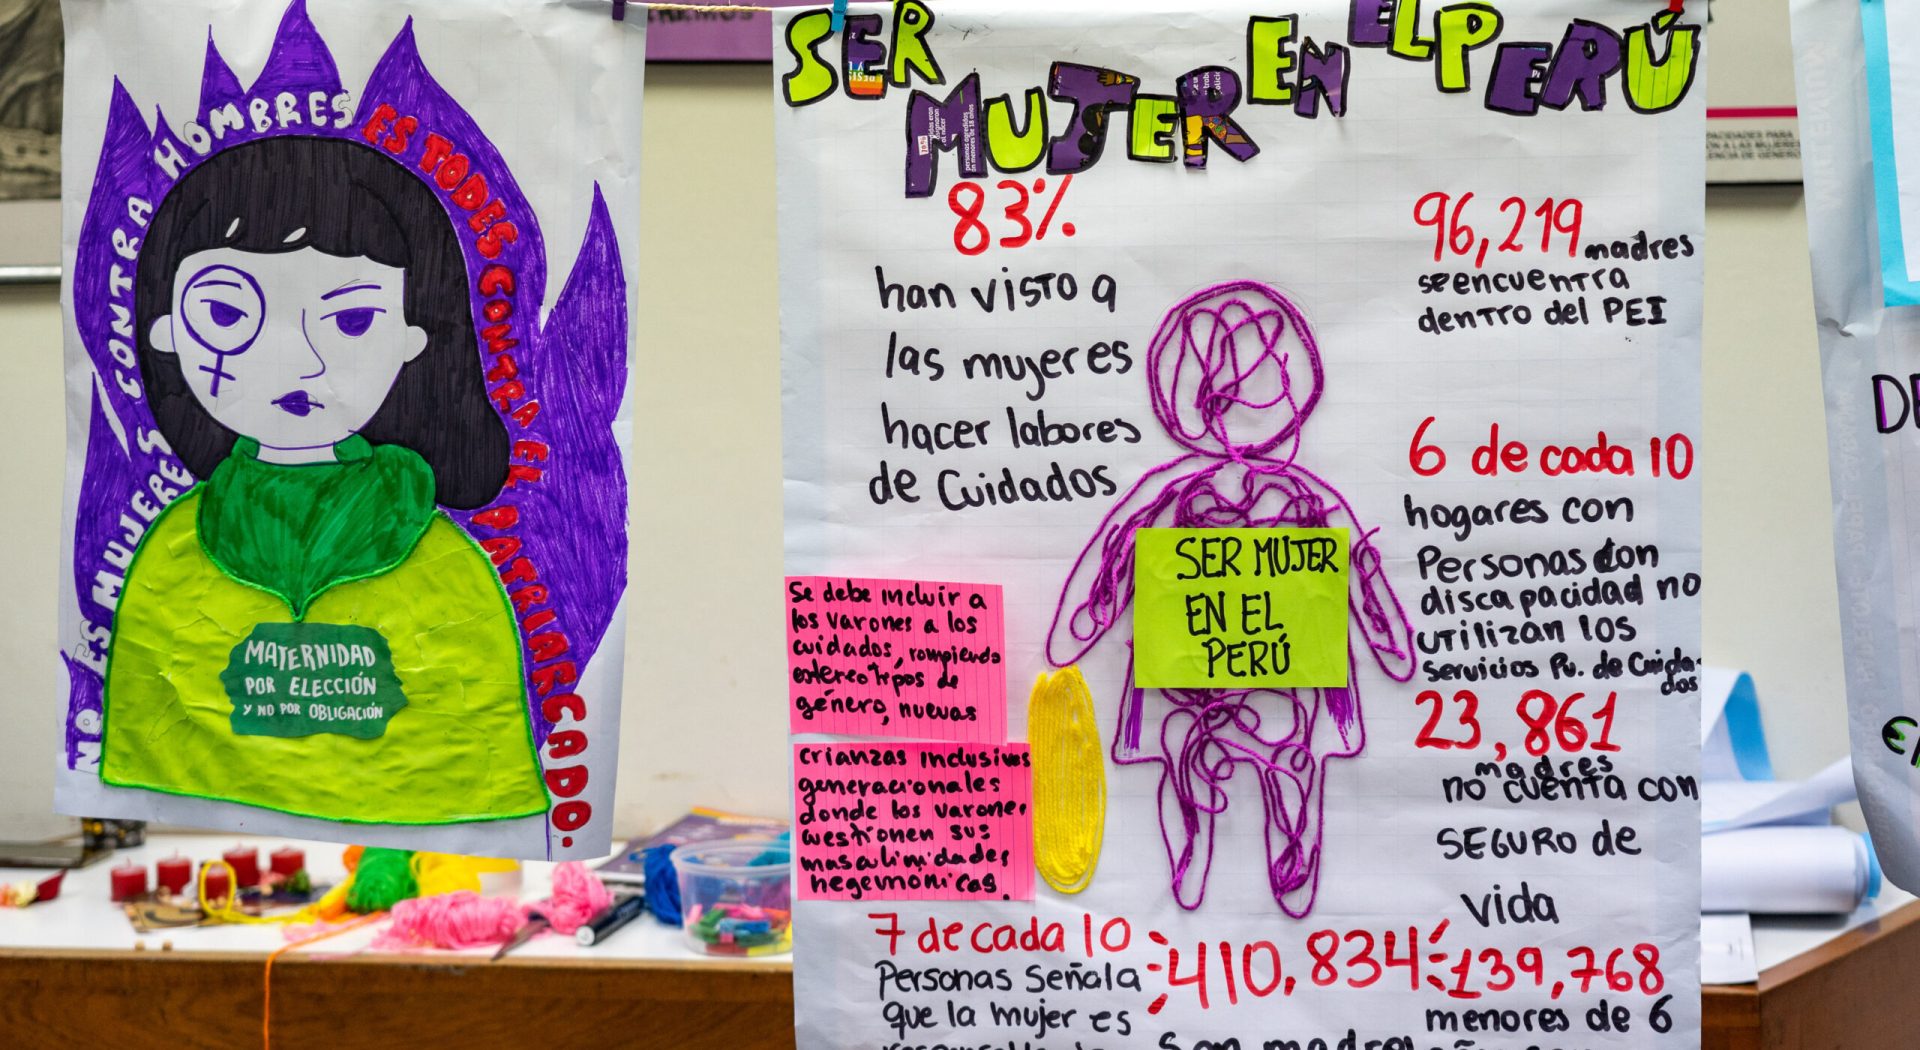 NO ES MUJERES CONTRA HOMBRES
ES TODES CONTRA EL PATRIARCADO.
MATERNIDAD
POR ELECCIÓN
Y NO POR OBLIGACIÓN
SER MUJER EN EL PERÚ
83%
han visto a
las mujeres
hacer labores
de Cuidados
96,219 madres
se encuentra
dentro del PEI
6 de cada 10
hogares con
Personas con
discapacidad no
utilizan los
Servicios Pu. de Cuida-
dos
23,861
madres
no cuenta con
SEGURO de
vida
SER MUJER
EN EL
PERÚ
Se debe incluir a
los varones a los
cuidados, rompiendo
estereotipos de
género, nuevas
crianzas inclusivas
generacionales
donde los varones
cuestionen sus
masculinidades
hegemónicas.
7 de cada 10
Personas Señala
que la mujer es
410,834
139,768
menores de 6